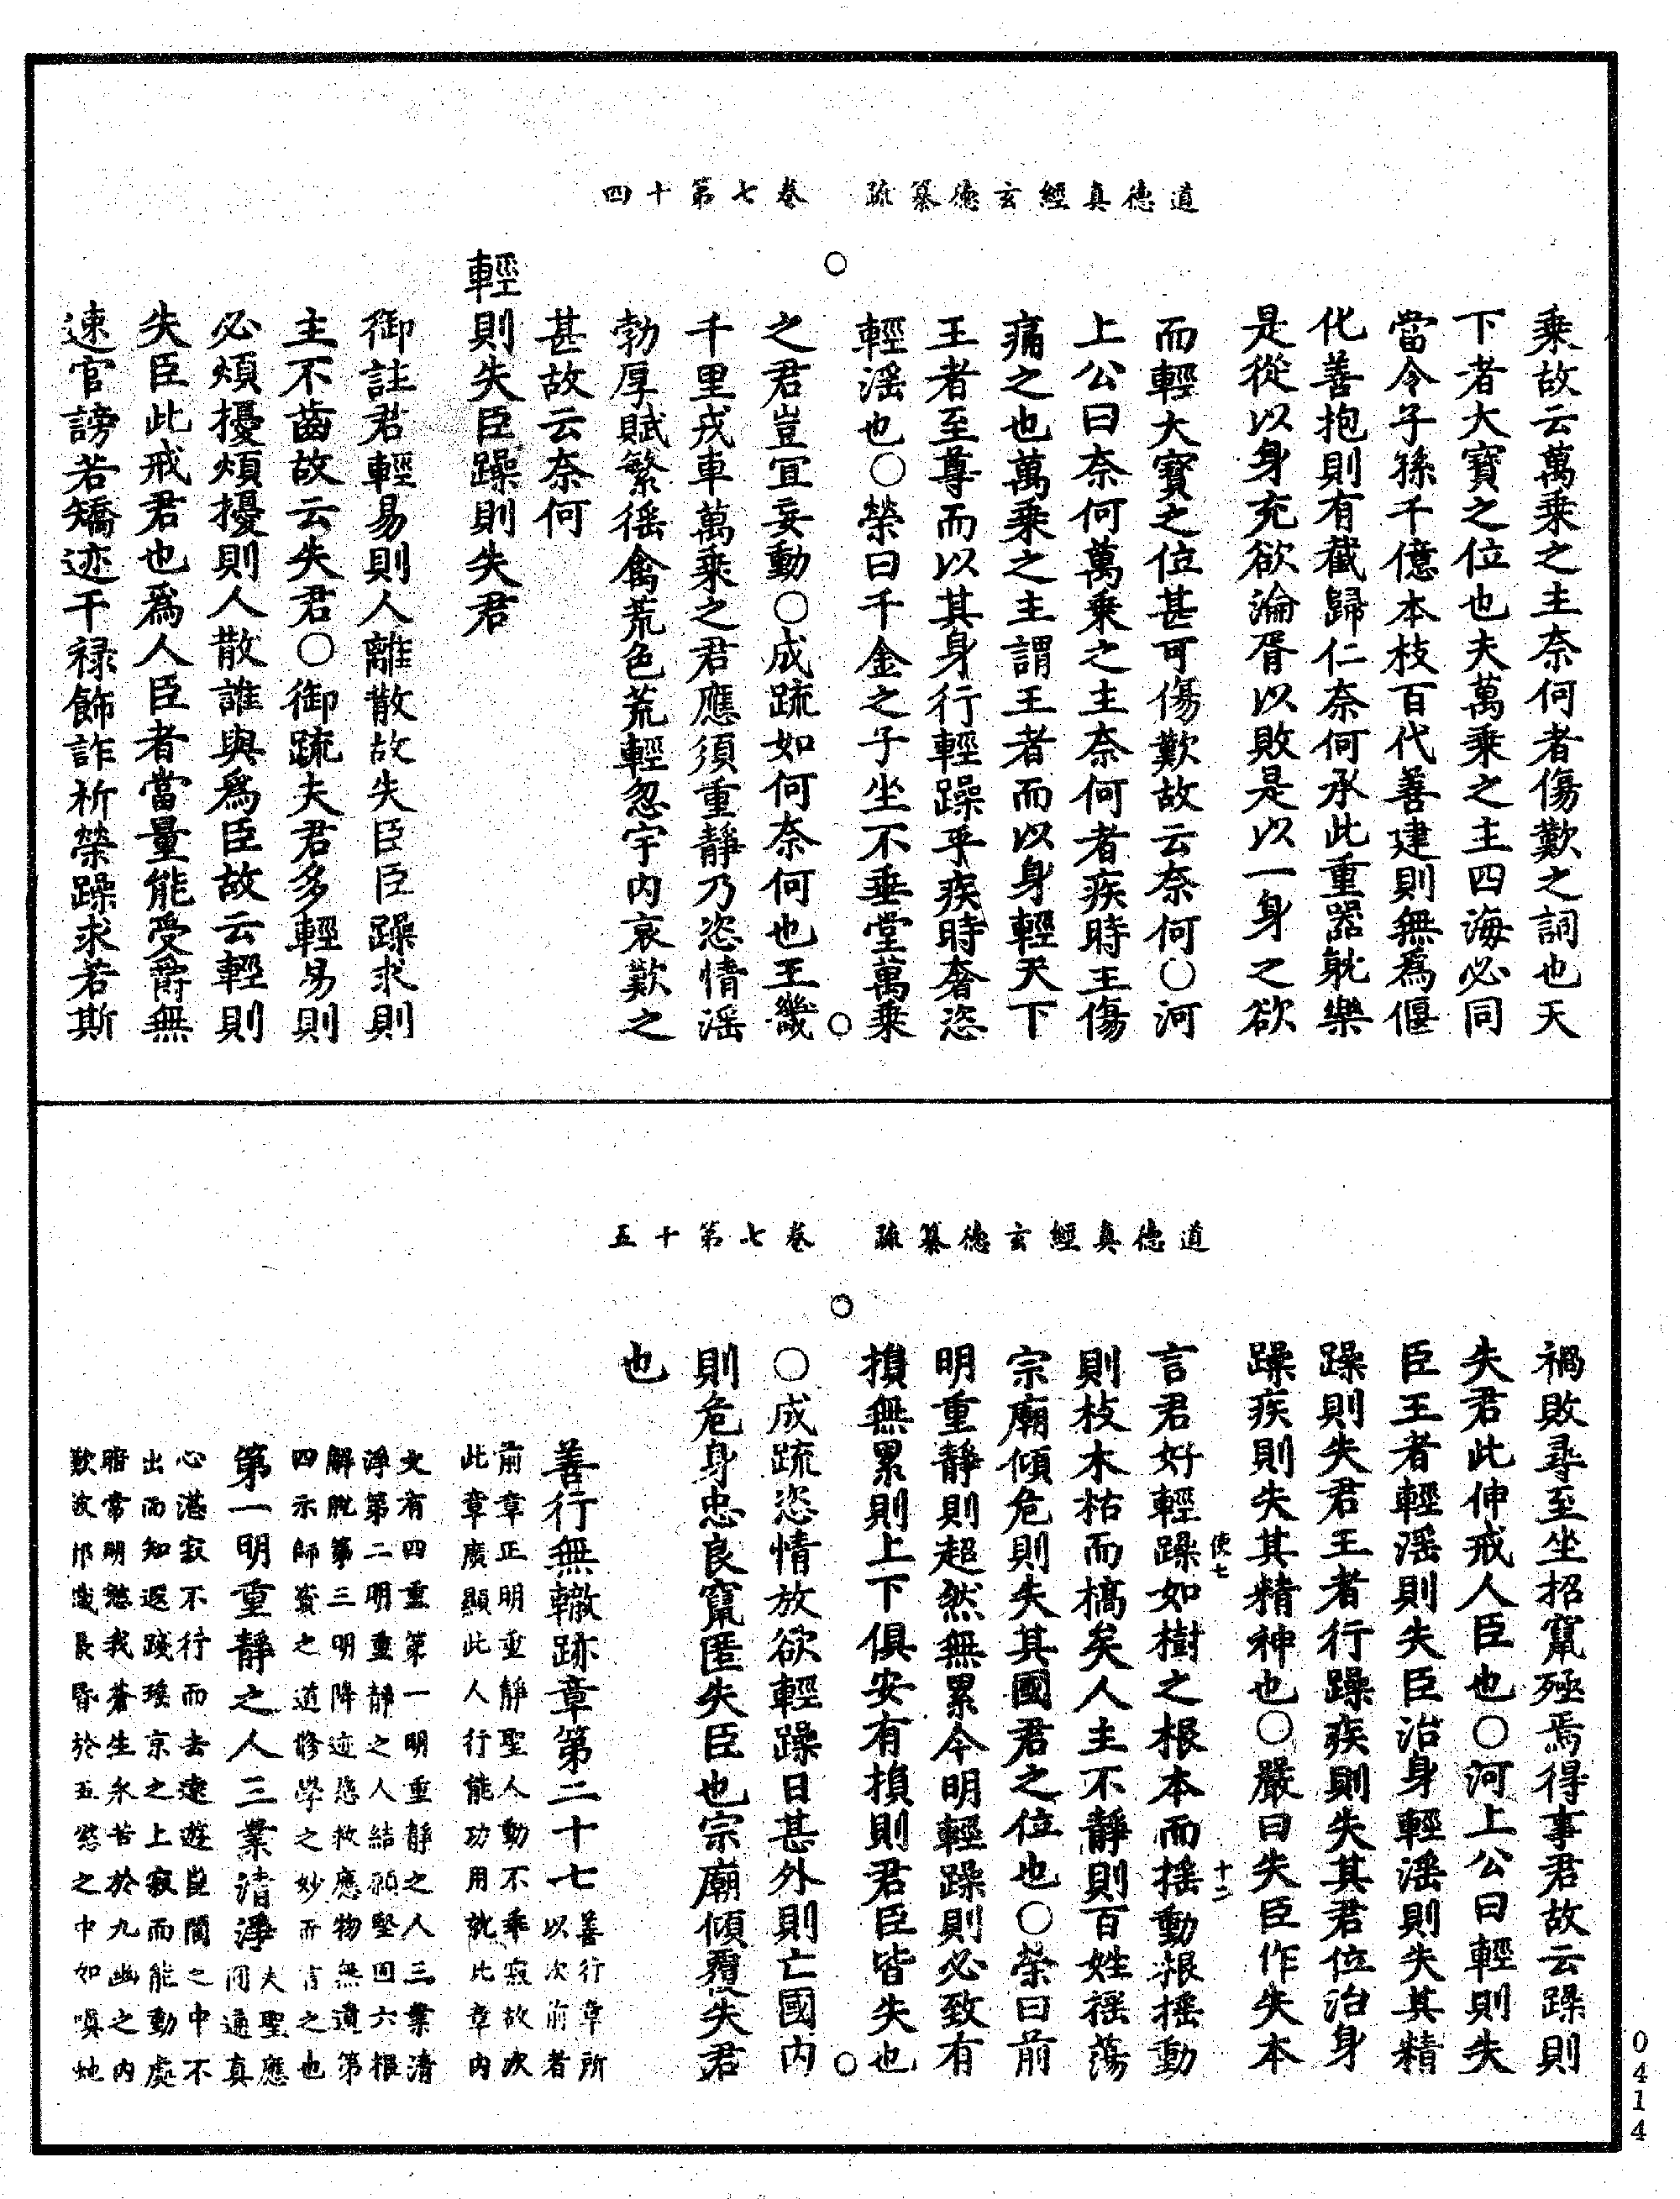 道德真經玄德纂疏　卷七第十四
乘故云萬乘之主奈何者傷歎之詞也天
下者大寶之位也夫萬乘之主四海必同
當令子孫千億本枝百代善建則無為偃
化善抱則有截歸仁奈何承此重器躭樂
是從以身充欲淪胥以敗是以一身之欲
而輕大寶之位甚可傷歎故云奈何〇河
上公曰奈何萬乘之主奈何者疾時王傷
痛之也萬乘之主謂王者而以身輕天下
王者至尊而以其身行輕躁乎疾時奢恣
輕淫也〇榮曰千金之子坐不垂堂萬乘
之君豈宜妄動〇成疏如何奈何也王畿
千里戎車萬乘之君應須重靜乃恣情淫
勃厚賦繁徭禽荒色荒輕忽宇內哀歎之
甚故云奈何
輕則失臣躁則失君
御註君輕易則人離散故失臣臣躁求則
主不齒故云失君〇御疏夫君多輕易則
必煩擾煩擾則人散誰與爲臣故云輕則
失臣此戒君也爲人臣者當量能受爵無
速官謗若矯迹干祿飾詐祈榮躁求若斯
道德真經玄德纂疏　卷七第十五
禍敗尋至坐招竄殛焉得事君故云躁則
失君此伸戒人臣也〇河上公曰輕則失
臣王者輕淫則失臣治身輕淫則失其精
躁則失君王者行躁疾則失其君位治身
躁疾則失其精神也〇嚴曰失臣作失本
使七　十二
言君好輕躁如樹之根本而搖動根搖動
則枝木枯而槁矣人主不靜則百姓搖蕩
宗廟傾危則失其國君之位也〇榮曰前
明重靜則超然無累今明輕躁則必致有
損無累則上下俱安有損則君臣皆失也
〇成疏恣情放欲輕躁日甚外則亡國內
則危身忠良竄匿失臣也宗廟傾覆失君
也
善行無轍跡章第二十七善行章所以次前者
前章正明重靜聖人動不乖寂故次
此章廣顯此人行能功用就此章內
文有四重第一明重靜之人三業清
淨第二明重靜之人結願堅固六根
解脫第三明降迹慈救應物無遺第
四示師資之道修學之妙而言之也
第一明重靜之人三業清淨大聖應周通真
心湛寂不行而去遠遊崑閬之中不
出而知返踐瑤京之上寂而能動處
暗常明愍我蒼生永苦於九幽之內
歎彼邪識長昏於五慾之中如嗔虵
0414